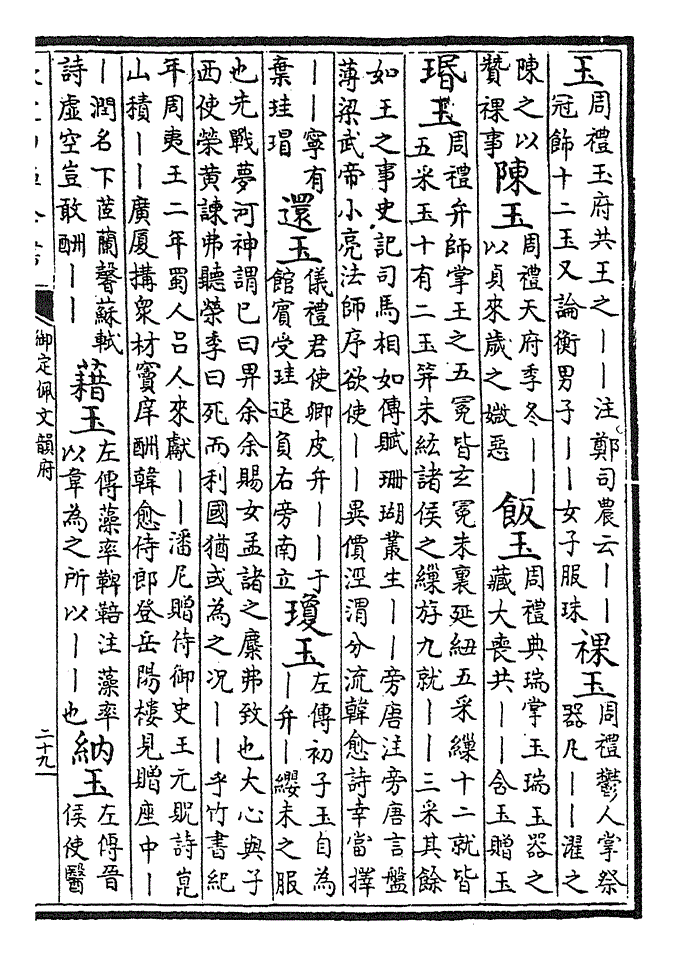 玉
周禮玉府共王之丨丨注鄭司農云丨丨
冠飾十二玉又論衡男子丨丨女子服珠
祼玉
周禮鬱人掌祭
器凡丨丨濯之
陳之以
贊祼事
陳玉
周禮天府季冬丨丨
以貞來歲之媺惡
飯玉
周禮典瑞掌玉瑞玉器之
藏大喪共丨丨含玉贈玉
瑉玉
周禮弁師掌王之五冕皆玄冕朱裏延紐五采繅十二就皆
五采玉十有二玉笄朱紘諸侯之繅斿九就丨丨三采其餘
如王之事史記司馬相如傳賦珊瑚叢生丨丨旁唐注旁唐言盤
薄梁武帝小亮法師序欲使丨丨異價涇渭分流韓愈詩幸當擇
丨丨寧有
棄珪瑁
還玉
儀禮君使卿皮弁丨丨于
館賓受珪退負右旁南立
瓊玉
左傳初子玉自為
丨弁丨纓未之服
也先戰夢河神謂已曰畀余余賜女孟諸之麋弗致也大心與子
西使榮黃諫弗聽榮季曰死而利國猶或為之况丨丨乎竹書紀
年周夷王二年蜀人呂人來獻丨丨潘尼贈侍御史王元貺詩崑
山積丨丨廣厦搆衆材竇庠酬韓愈侍郎登岳陽樓見贈座中丨
丨潤名下茝蘭馨蘇軾
詩虛空豈敢酬丨丨
藉玉
左傳藻率鞞鞛注藻率
以韋為之所以丨丨也
納玉
左傳晉
侯使醫
御定佩文韻府
二十九